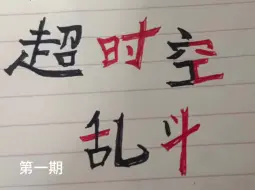 超时空
乱斗
第一期